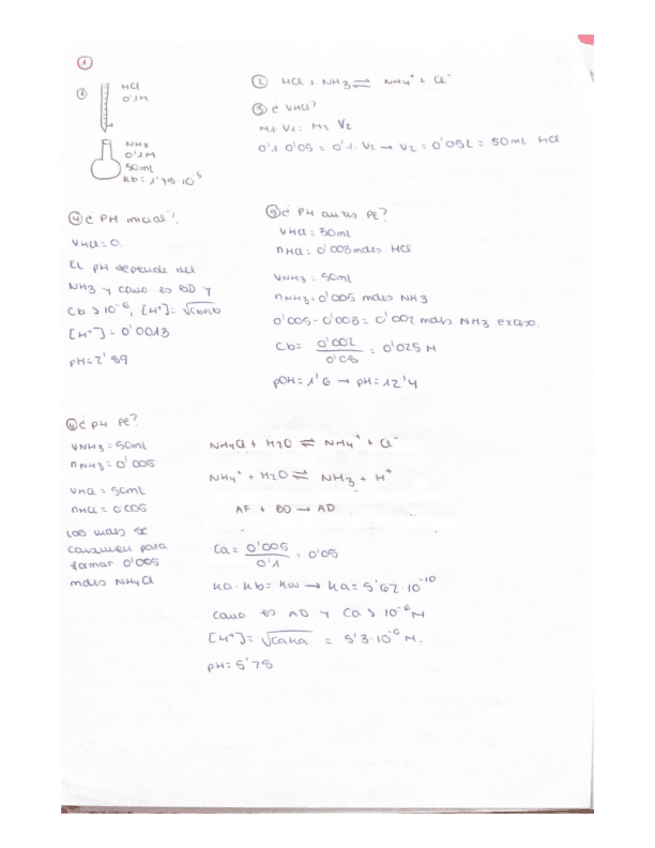 ①
① HCl
0'1M
NH3
0'1M
50mL
Kb = 1'78·10⁻⁵
② HCl + NH3 ⇌ NH4⁺ + Cl⁻
③ ¿VHCl?
M1·V1 = M2 V2
0'1·0'05 = 0'1·V2 → V2 = 0'05L = 50mL HCl
④ ¿PH inicial?
VHCl = 0.
El pH depende del
NH3 y como es BD y
Cb > 10⁻⁶, [H⁺] = √CbKb
[H⁺] = 0'0013
pH = 2'89
⑤ ¿PH antes PE?
VHCl = 30mL
nHCl = 0'003 moles HCl
VNH3 = 50mL
nNH3 = 0'005 moles NH3
0'005 - 0'003 = 0'002 moles NH3 exceso.
Cb = 0'002/0'08 = 0'025 M
pOH = 1'6 → pH = 12'4
⑥ ¿PH PE?
VNH3 = 50mL
nNH3 = 0'005
VHCl = 50mL
nHCl = 0'005
Los moles se
consumen para
formar 0'005
moles NH4Cl
NH4Cl + H2O ⇌ NH4⁺ + Cl⁻
NH4⁺ + H2O ⇌ NH3 + H⁺
AF + BD → AD
Ca = 0'005/0'1 = 0'05
Ka·Kb = Kw → Ka = 5'62·10⁻¹⁰
Como es AD y Ca > 10⁻⁶ M
[H⁺] = √CaKa = 5'3·10⁻⁶ M.
pH = 5'75